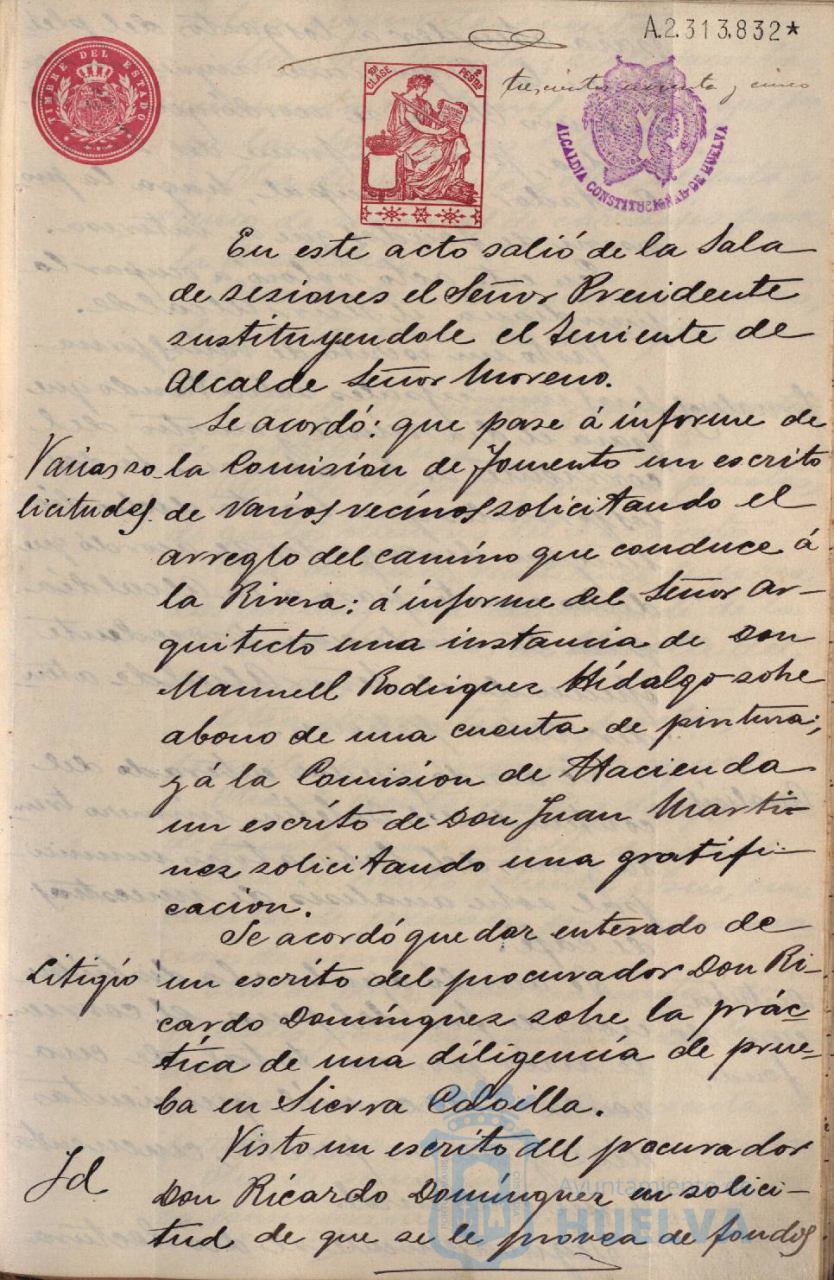 A.2.313.832*
TIMBRE DEL ESTADO
CLASE
PESTAS
trescientos y cinco
ALCALDIA CONSTITUCIONAL DE HUELVA
En este acto salió de la Sala
de sesiones el Señor Presidente
sustituyendole el Teniente de
Alcalde Señor Moreno.
Se acordó: que pase á informe de
Varias so-
licitudes.
la Comisión de Fomento un escrito
de varios vecinos solicitando el
arreglo del camino que conduce á
la Rivera; á informe del Señor Ar-
quitecto una instancia de Don
Manuell Rodriguez Hidalgo sobre
abono de una cuenta de pintura;
y á la Comisión de Hacienda
un escrito de Don Juan Marti-
nez solicitando una gratifi-
cacion.
Se acordó quedar enterado de
Litigio
un escrito del procurador Don Ri-
cardo Domínguez sobre la prác-
tica de una diligencia de prue-
ba en Sierra Caloilla.
Visto un escrito del procurador
Id
Don Ricardo Domínguez en solici-
tud de que se le provea de fondos
Ayuntamiento de
HUELVA